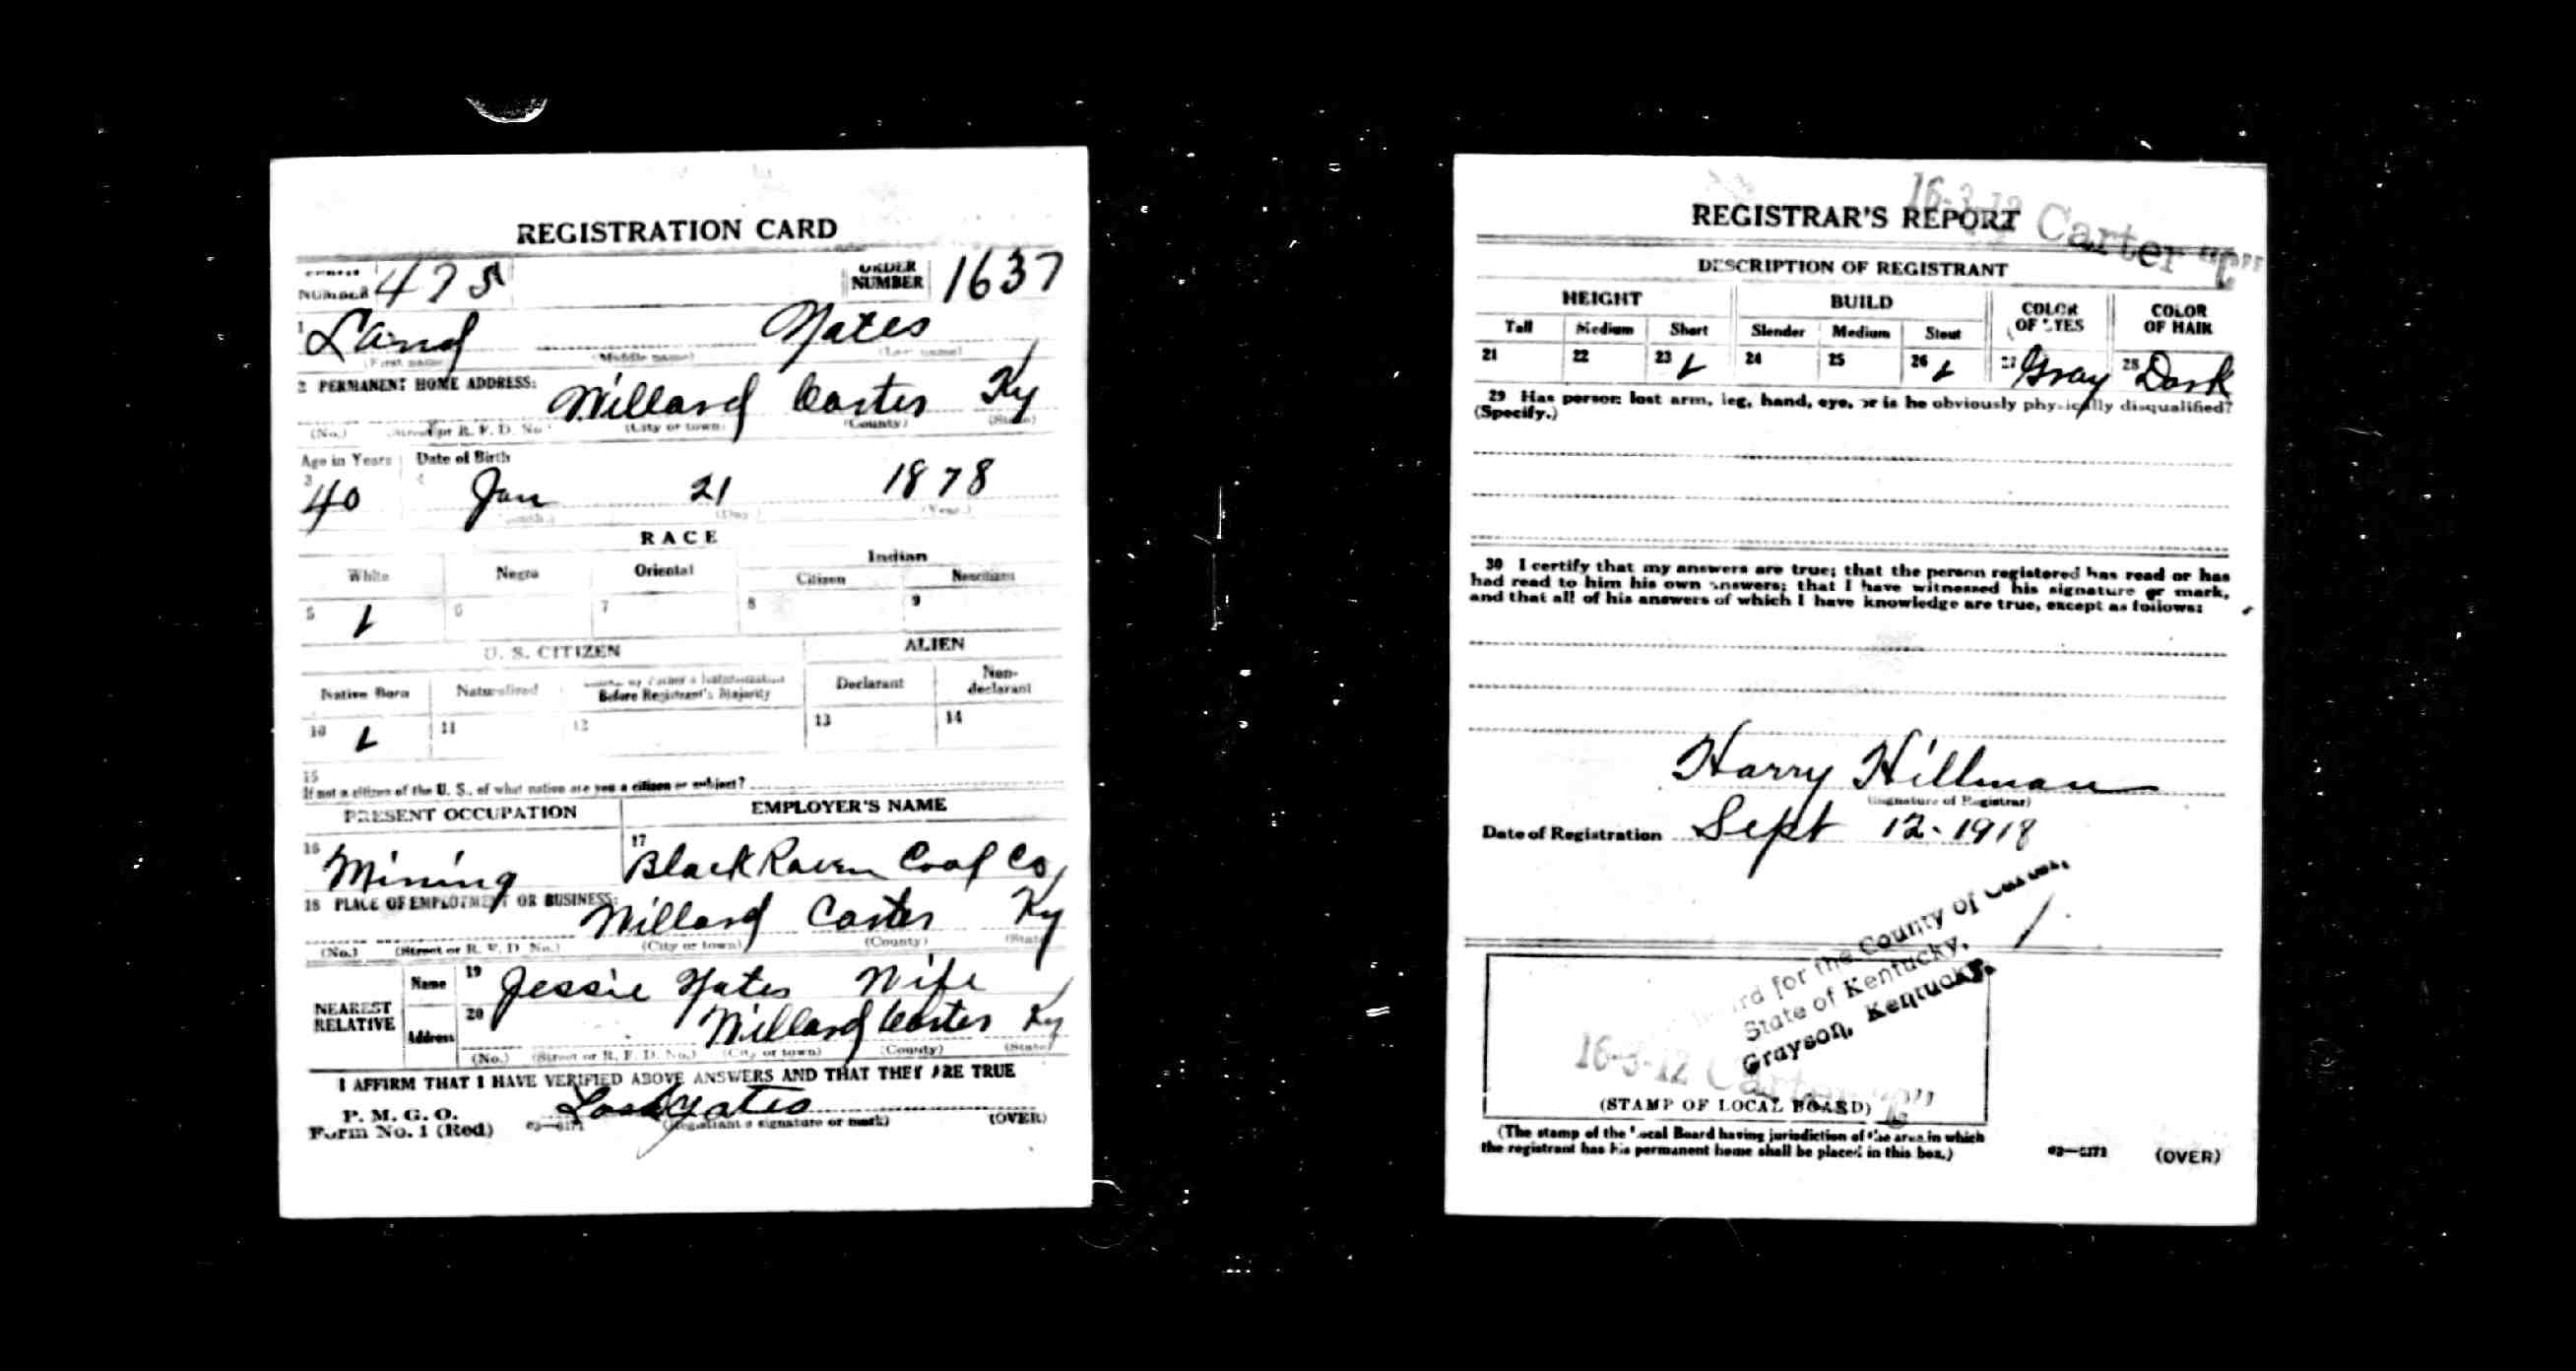 REGISTRATION CARD
NUMBER 475 ORDER NUMBER 1637
1 Land Yates
(First name) (Middle name) (Last name)
2 PERMANENT HOME ADDRESS:
Willard Carter Ky
(No.) (Street or R. F. D. No.) (City or town) (County) (State)
Age in Years Date of Birth
3 40 4 Jan 21 1878
(Month.) (Day.) (Year.)
RACE
White Negro Oriental Indian
Citizen Noncitizen
5 ✓ 6 7 8 9
U. S. CITIZEN ALIEN
Native Born Naturalized Before Registrant's Majority Declarant Non-declarant
10 ✓ 11 12 13 14
15
If not a citizen of the U. S., of what nation are you a citizen or subject?
PRESENT OCCUPATION EMPLOYER'S NAME
16 Mining 17 Black Raven Coal Co
18 PLACE OF EMPLOYMENT OR BUSINESS:
Willard Carter Ky
(No.) (Street or R. F. D. No.) (City or town) (County) (State)
NEAREST RELATIVE
Name 19 Jessie Yates Wife
Address 20 Willard Carter Ky
(No.) (Street or R. F. D. No.) (City or town) (County) (State)
I AFFIRM THAT I HAVE VERIFIED ABOVE ANSWERS AND THAT THEY ARE TRUE
P. M. G. O.
Form No. 1 (Red) Yates
(Registrant's signature or mark) (OVER)
16-3-12 Carter "C"
REGISTRAR'S REPORT
DESCRIPTION OF REGISTRANT
HEIGHT BUILD COLOR OF EYES COLOR OF HAIR
Tall Medium Short Slender Medium Stout
21 22 23 ✓ 24 25 26 ✓ 27 Gray 28 Dark
29 Has person lost arm, leg, hand, eye, or is he obviously physically disqualified?
(Specify.)
30 I certify that my answers are true; that the person registered has read or has
had read to him his own answers; that I have witnessed his signature or mark,
and that all of his answers of which I have knowledge are true, except as follows:
Harry Hillman
(Signature of Registrar)
Date of Registration Sept 12-1918
for the County of
State of Kentucky,
Grayson, Kentucky.
16-3-12 Carter "C"
(STAMP OF LOCAL BOARD)
(The stamp of the Local Board having jurisdiction of the area in which
the registrant has his permanent home shall be placed in this box.)
03—6171 (OVER)